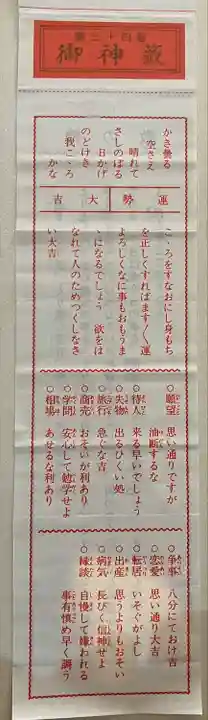 第三十四番
御神籤
かき曇る
空さえ
晴れて
さしのぼる
日かげ
のどけき
我こゝろ
かな
運勢
大吉
こゝろをすなおにし身もち
を正しくすればます〱運
よろしくなに事もおもうま
ゝになるでしょう 欲をは
なれて人のためつくしなさ
い大吉
○願望 思い通りですが
油断するな
○待人 来る早いでしょう
○失物 出るひくい処
○旅行 急ぐな吉
○商売 おそいが利あり
○学問 安心して勉学せよ
○相場 あせるな利あり
○争事 八分にておけ吉
○恋愛 思い通り大吉
○転居 いそぐがよし
○出産 思うよりもおそい
○病気 長びく信神せよ
○縁談 自慢して嫌われる
事有慎め早く調う